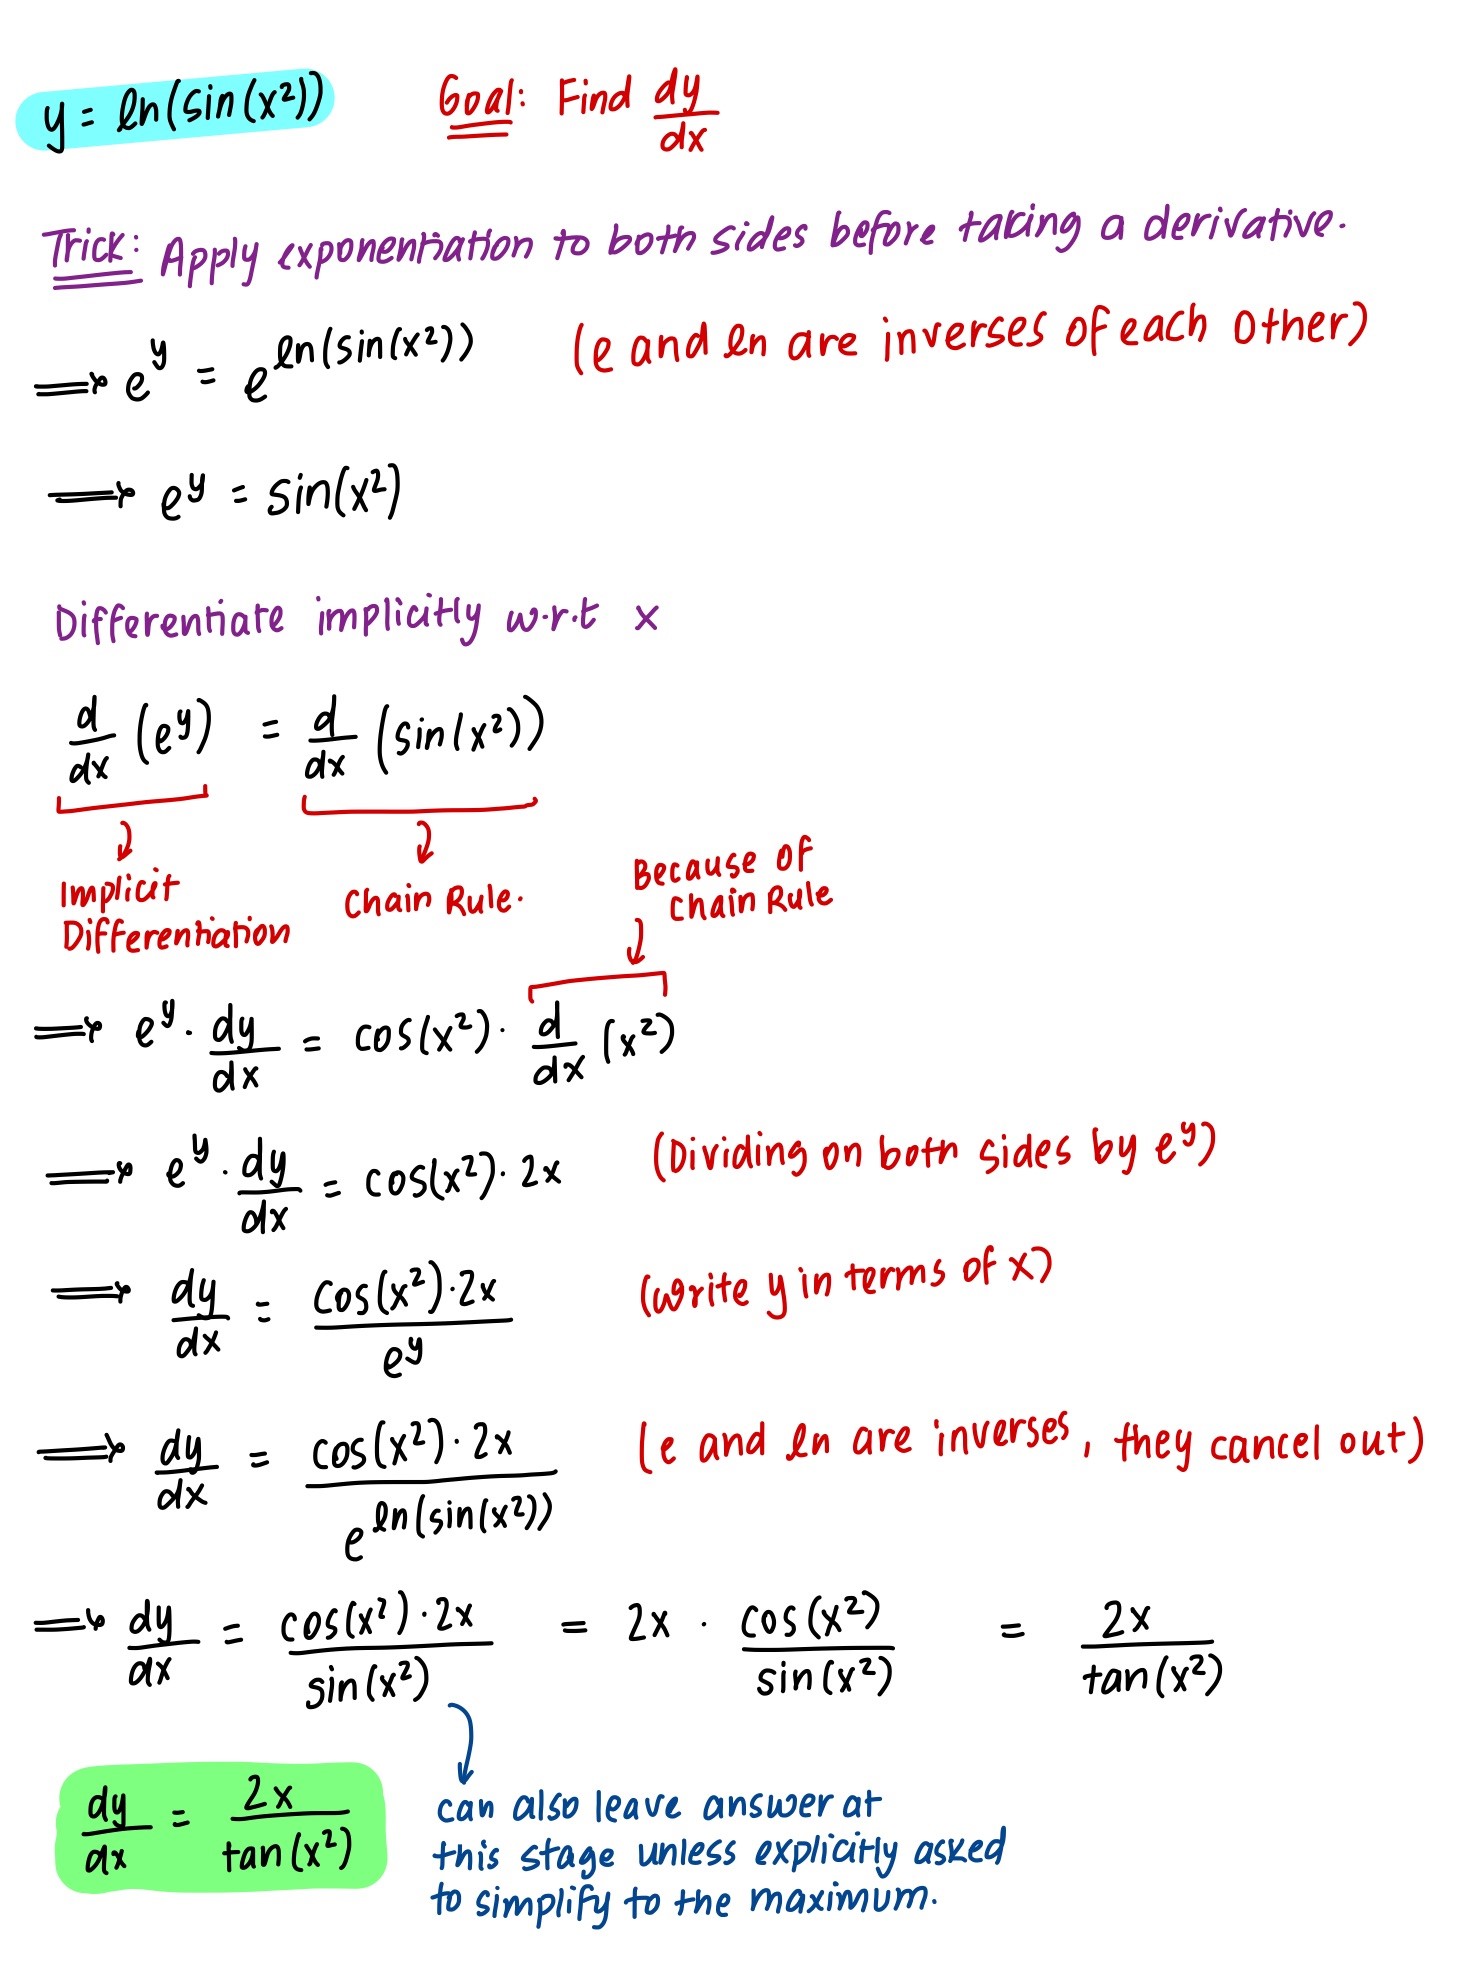 y = ln(sin(x²)) Goal: Find dy/dx
Trick: Apply exponentiation to both sides before taking a derivative.
⟹ e^y = e^ln(sin(x²)) (e and ln are inverses of each other)
⟹ e^y = sin(x²)
Differentiate implicitly w.r.t x
d/dx (e^y) = d/dx (sin(x²))
Implicit
Differentiation
Chain Rule.
Because of
Chain Rule
⟹ e^y · dy/dx = cos(x²) · d/dx (x²)
⟹ e^y · dy/dx = cos(x²) · 2x (Dividing on both sides by e^y)
⟹ dy/dx = cos(x²) · 2x / e^y (write y in terms of x)
⟹ dy/dx = cos(x²) · 2x / e^ln(sin(x²)) (e and ln are inverses, they cancel out)
⟹ dy/dx = cos(x²) · 2x / sin(x²) = 2x · cos(x²) / sin(x²) = 2x / tan(x²)
dy/dx = 2x / tan(x²)
can also leave answer at
this stage unless explicitly asked
to simplify to the maximum.